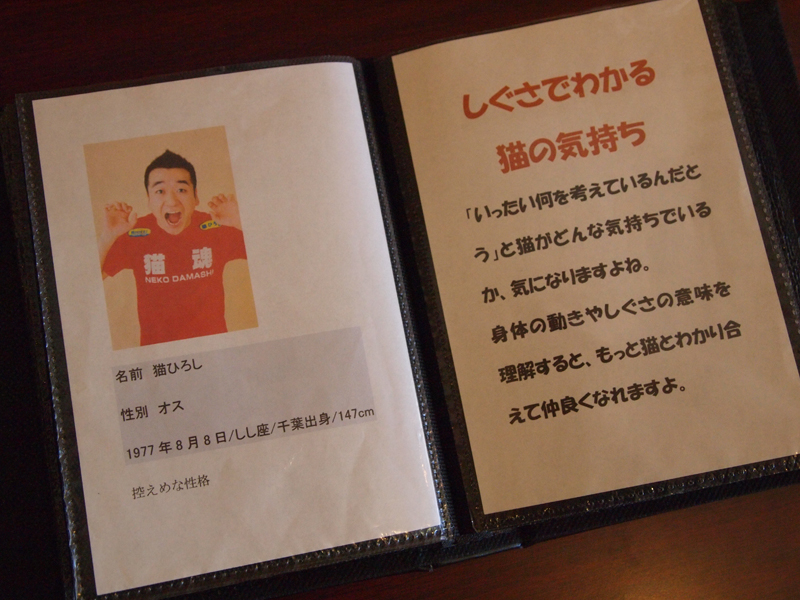 猫 魂
NEKO DAMASHII
名前 猫ひろし
性別 オス
1977年8月8日/しし座/千葉出身/147cm
控えめな性格
しぐさでわかる
猫の気持ち
「いったい何を考えているんだと
う」と猫がどんな気持ちでいる
か、気になりますよね。
身体の動きやしぐさの意味を
理解すると、もっと猫とわかり合
えて仲良くなれますよ。